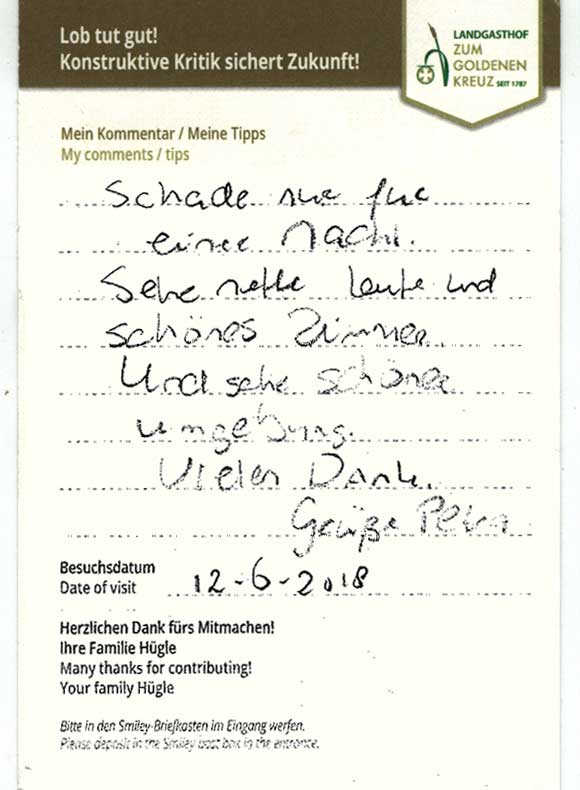 Lob tut gut!
Konstruktive Kritik sichert Zukunft!
LANDGASTHOF
ZUM
GOLDENEN
KREUZ SEIT 1787
Mein Kommentar / Meine Tipps
My comments / tips
Schade nur für
einer Nacht.
Sehr nette Leute und
schönes Zimmer.
Und sehr schöner
umgebung.
Vielen Dank.
Grüße Peter
Besuchsdatum
Date of visit 12-6-2018
Herzlichen Dank fürs Mitmachen!
Ihre Familie Hügle
Many thanks for contributing!
Your family Hügle
Bitte in den Smiley-Briefkasten im Eingang werfen.
Please deposit in the Smiley post box in the entrance.